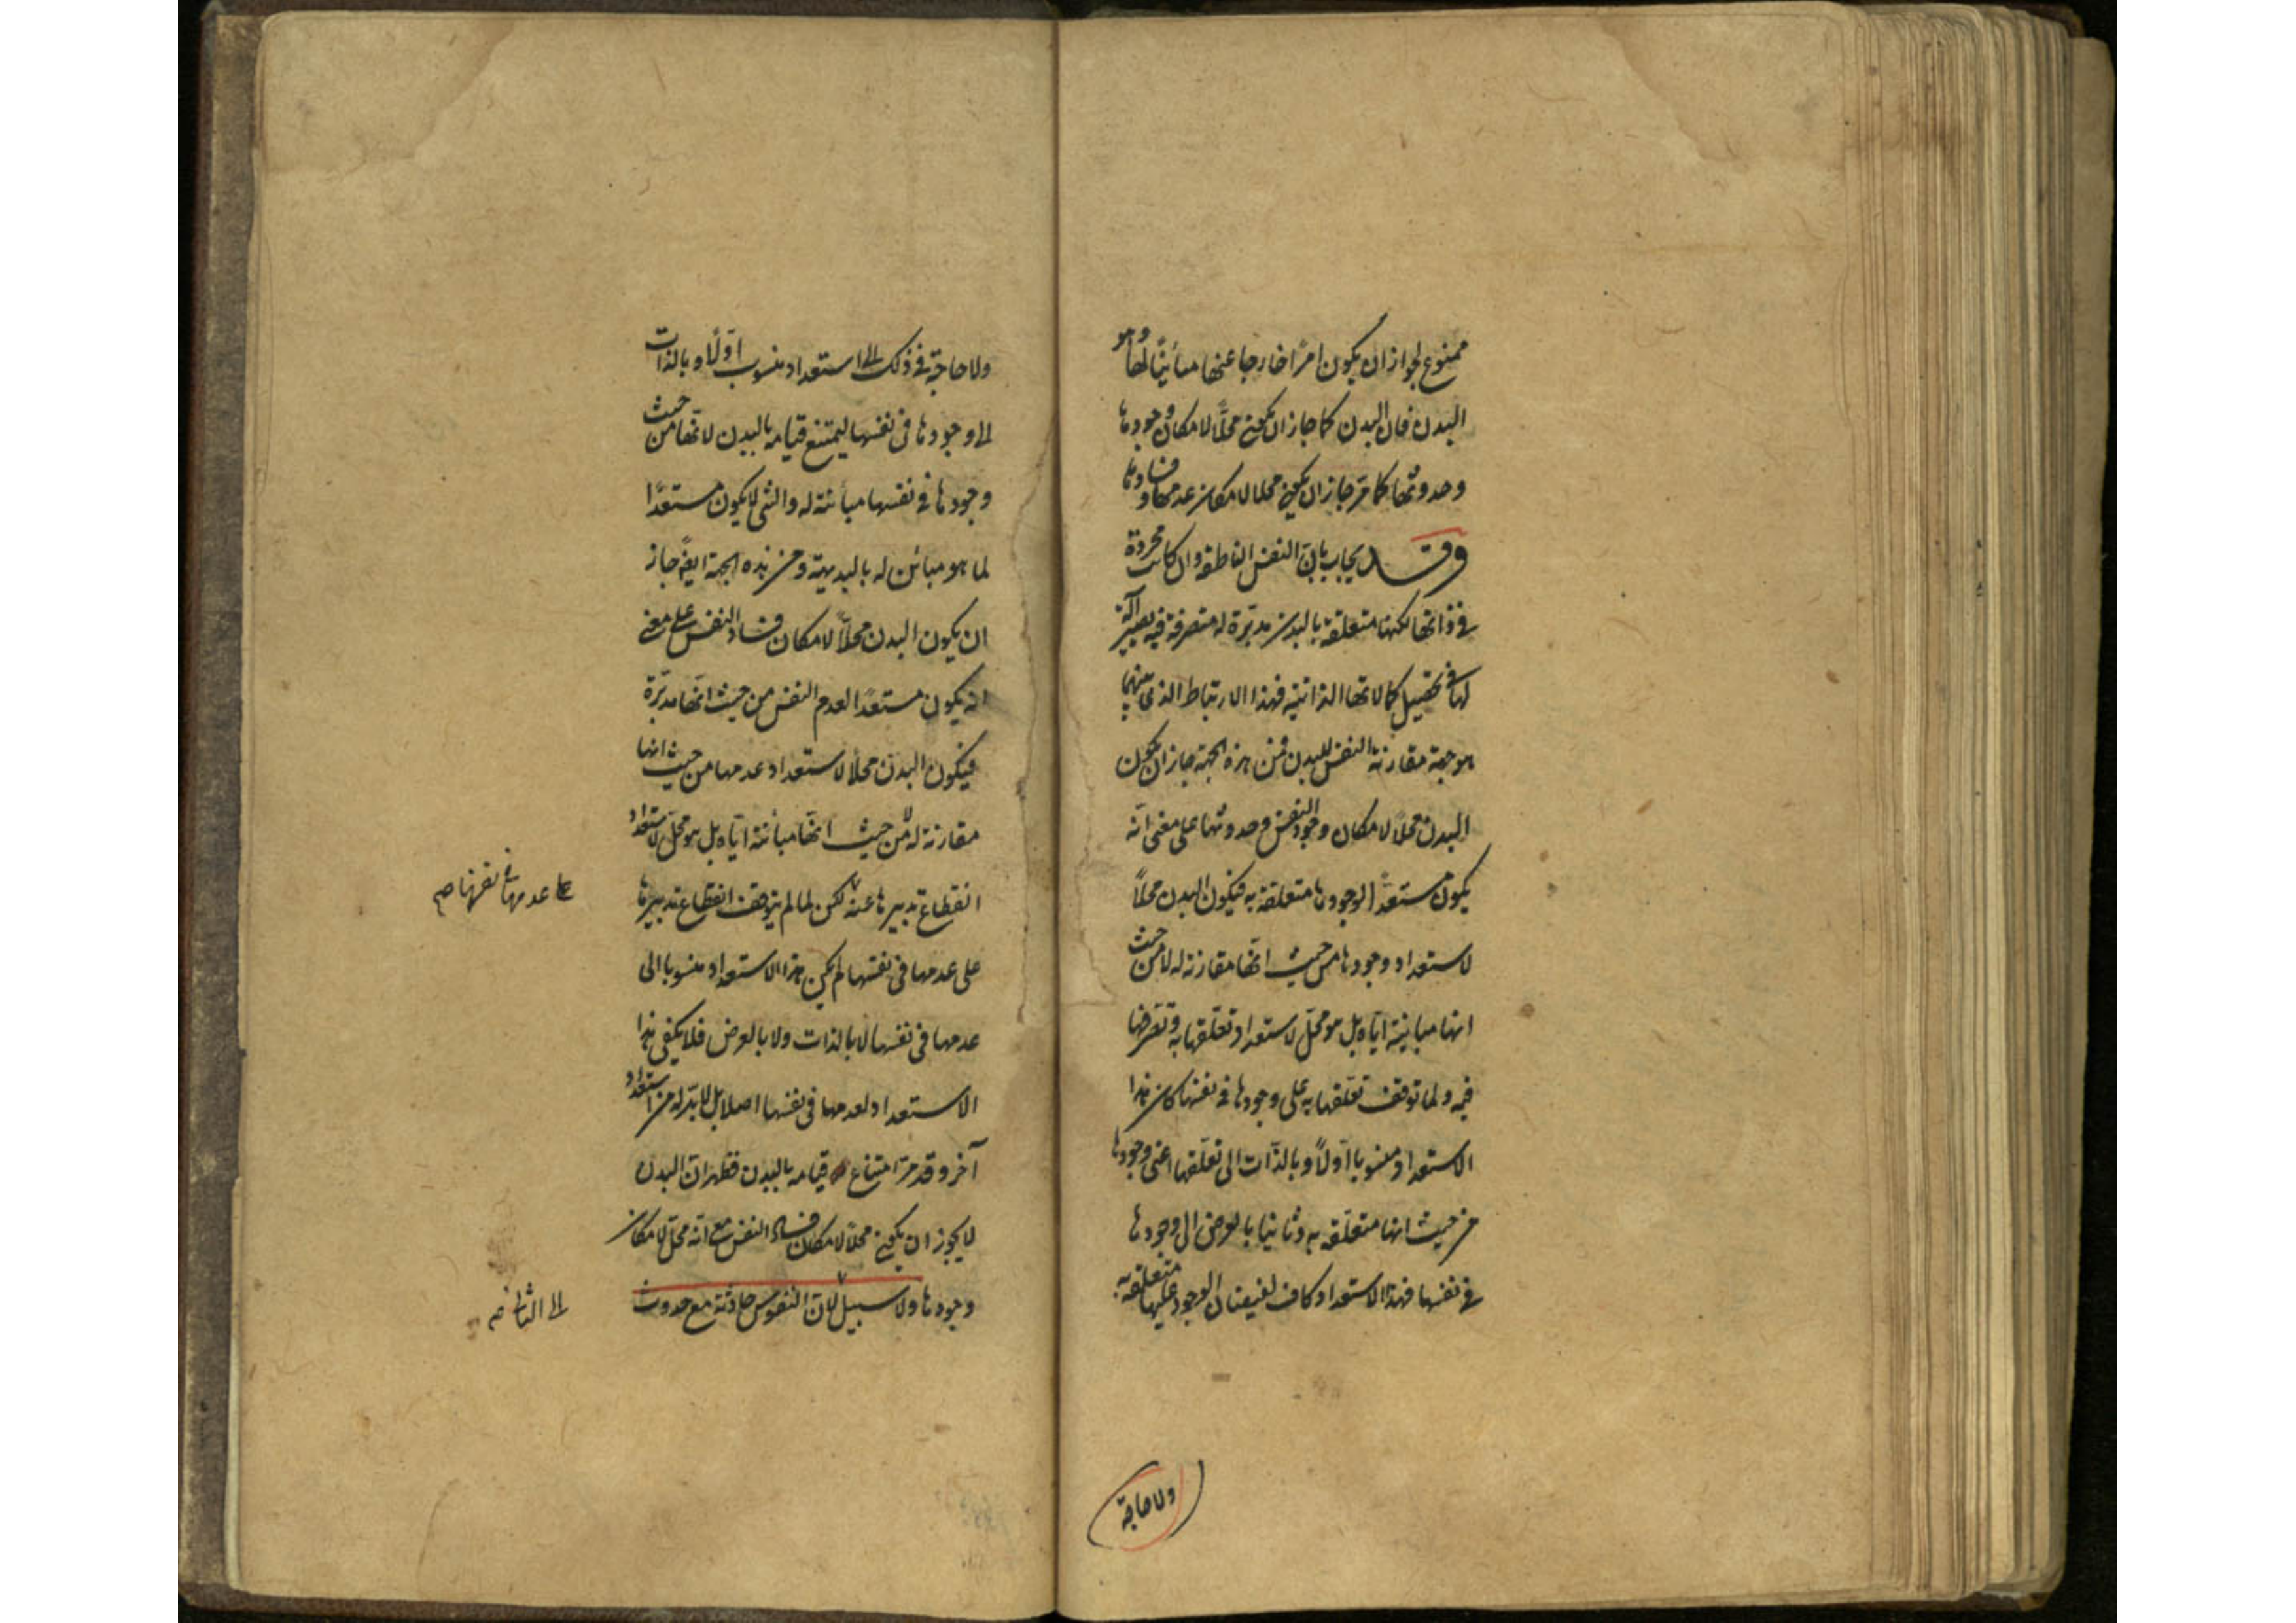 ممنوع لجواز ان يكون امرًا خارجا عنها مبائنًا لها وهو
البدن فان البدن كما جاز ان يكون محلًّا لامكان وجودها
وحدوثها كما مرّ جاز ان يكون محلا لامكان عدمها وفسادها
وقد يجاب بانّ النفس الناطقة وان كانت مجردة
فى ذاتها لكنها متعلقة بالبدن مدبّرة له متصرفة فيه يصير آلة
لها فى تحصيل كمالاتها الذاتية فهذا الارتباط الذى بينهما
هو جهة مقارنة النفس للبدن فمن هذه الجهة جاز ان يكون
البدن محلّا لامكان وجود النفس وحدوثها على معنى انّه
يكون مستعدًّا لوجودها متعلقة به فيكون البدن محلًّا
لاستعداد وجودها من حيث انّها مقارنة له لا من حيث
انها مباينة ايّاه بل هو محلّ لاستعداد تعلّقها به وتصرّفها
فيه ولما توقف تعلّقها به على وجودها فى نفسها كان هذا
الاستعداد منسوبا اولًا وبالذّات الى تعلّقها اعنى وجودها
من حيث انها متعلّقة به وثانيا بالعرض الى وجودها
فى نفسها فهذا الاستعداد كاف لفيضان الوجود عليها متعلقة به
ولا حاجة
ولا حاجة فى ذلك الى استعداد منسوب اوّلًا وبالذات
الى وجودها فى نفسها ليمتنع قيامه بالبدن لانّها من حيث
وجودها فى نفسها مبائنة له والشئ لا يكون مستعدًّا
لما هو مبائن له بالبديهة ومن هذه الجهة ايضً جاز
ان يكون البدن محلّاً لامكان فساد النفس على معنى
انه يكون مستعدًا لعدم النفس من حيث انّها مدبّرة
فيكون البدن محلًا لاستعداد عدمها من حيث انها
مقارنة له لا من حيث انّها مبائنة ايّاه بل هو محلّ لاستعداد
انقطاع تدبيرها عنه لكن لما لم يتوقف انقطاع تدبيرها
على عدمها فى نفسها لم يكن هذا الاستعداد منسوبا الى
عدمها فى نفسها لا بالذات ولا بالعرض فلا يكفى هذا
الاستعداد لعدمها فى نفسها اصلا بل لا بدّ له من استعداد
آخر وقد مرّ امتناع قيامه بالبدن فظهر انّ البدن
لا يجوز ان يكون محلًا لامكان فساد النفس مع انّه محلّ لامكان
وجودها ولا سبيل لانّ النفوس حادثة مع حدوث
على عدمها فى نفسها صح
الى الثانى صح